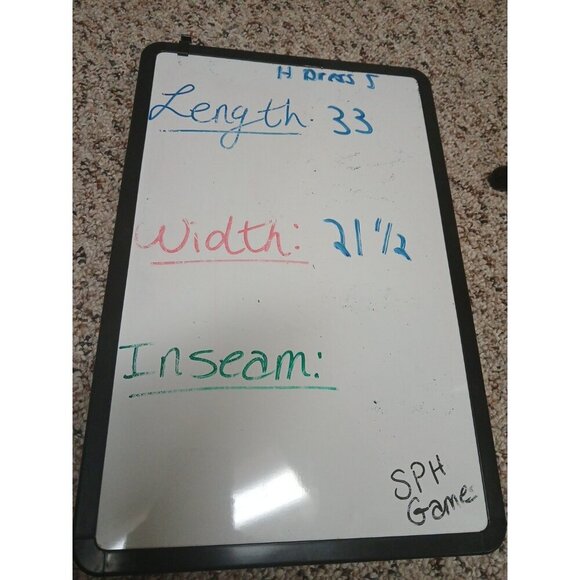 H Dress 5
Length: 33
Width: 21 1/2
Inseam:
SPH
Game